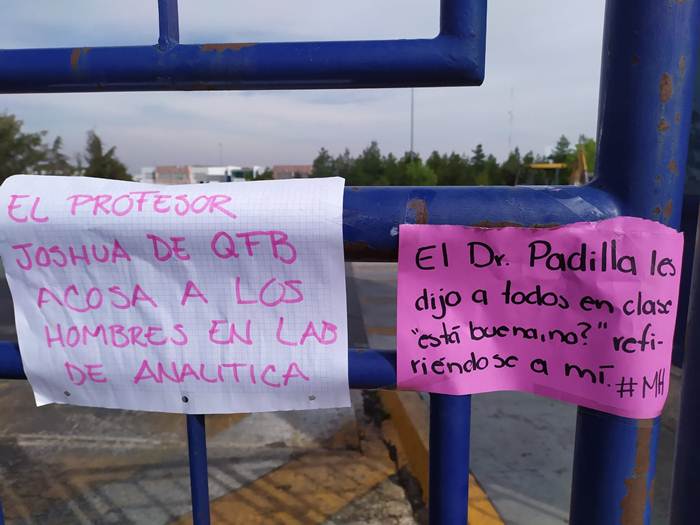 EL PROFESOR
JOSHUA DE QFB
ACOSA A LOS
HOMBRES EN LAB
DE ANALITICA
El Dr. Padilla les
dijo a todos en clase
"está buena, no?" refi-
riéndose a mí. #MH